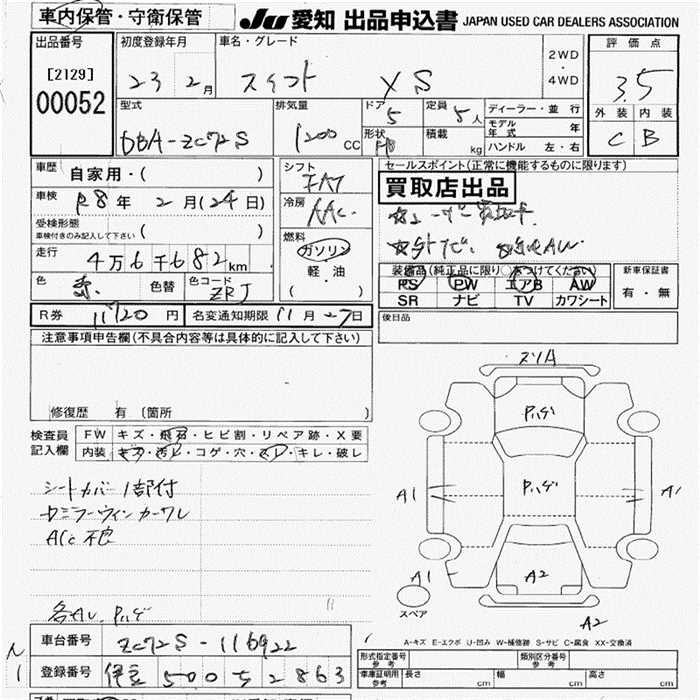 車内保管・守衛保管
JU 愛知 出品申込書 JAPAN USED CAR DEALERS ASSOCIATION
出品番号
[2129]
00052
初度登録年月
23 2月
車名・グレード
スイフト XS
2WD
・
4WD
評価点
3.5
外装 内装
C B
型式
DBA-ZC72S
排気量
1200 CC
ドア
5
形状
定員
5人
積載
kg
ディーラー・並行
モデル年式 年
ハンドル 左・右
車歴
自家用・( )
車検
R8年 2月(24日)
受検形態
車検付きのみ記入して下さい ( )
走行
4万6千682km
色
赤
色替
色コード
ZRJ
シフト
FAT
冷房
AAC
燃料
ガソリン
軽油
( )
セールスポイント(正常に機能するものに限ります)
買取店出品
装備品(純正品に限り○をつけてください)
PS PW エアB AW
SR ナビ TV カワシート
新車保証書
有・無
R券 11720円
名変通知期限 11月27日
後日品
注意事項申告欄(不具合内容等は具体的に記入して下さい)
修復歴 有 (箇所 )
検査員
記入欄
FW キズ・飛石・ヒビ割・リペア跡・X要
内装 キズ・汚レ・コゲ・穴・スレ・キレ・破レ
シートカバー1部付
ドミラーウィンカーワレ
ACC不良
各AU、Pハゲ
ズリA
Pハゲ
Pハゲ
A1
A1
A1
A2
A2
スペア
A-キズ E-エクボ U-凹み W-補修跡 S-サビ C-腐食 XX-交換済
車台番号 ZC72S-116922
登録番号 伊豆 500 ち 2863
形式指定番号
参考
類別区分番号
参考
車庫証明用
参考
長さ cm 幅 cm 高さ cm